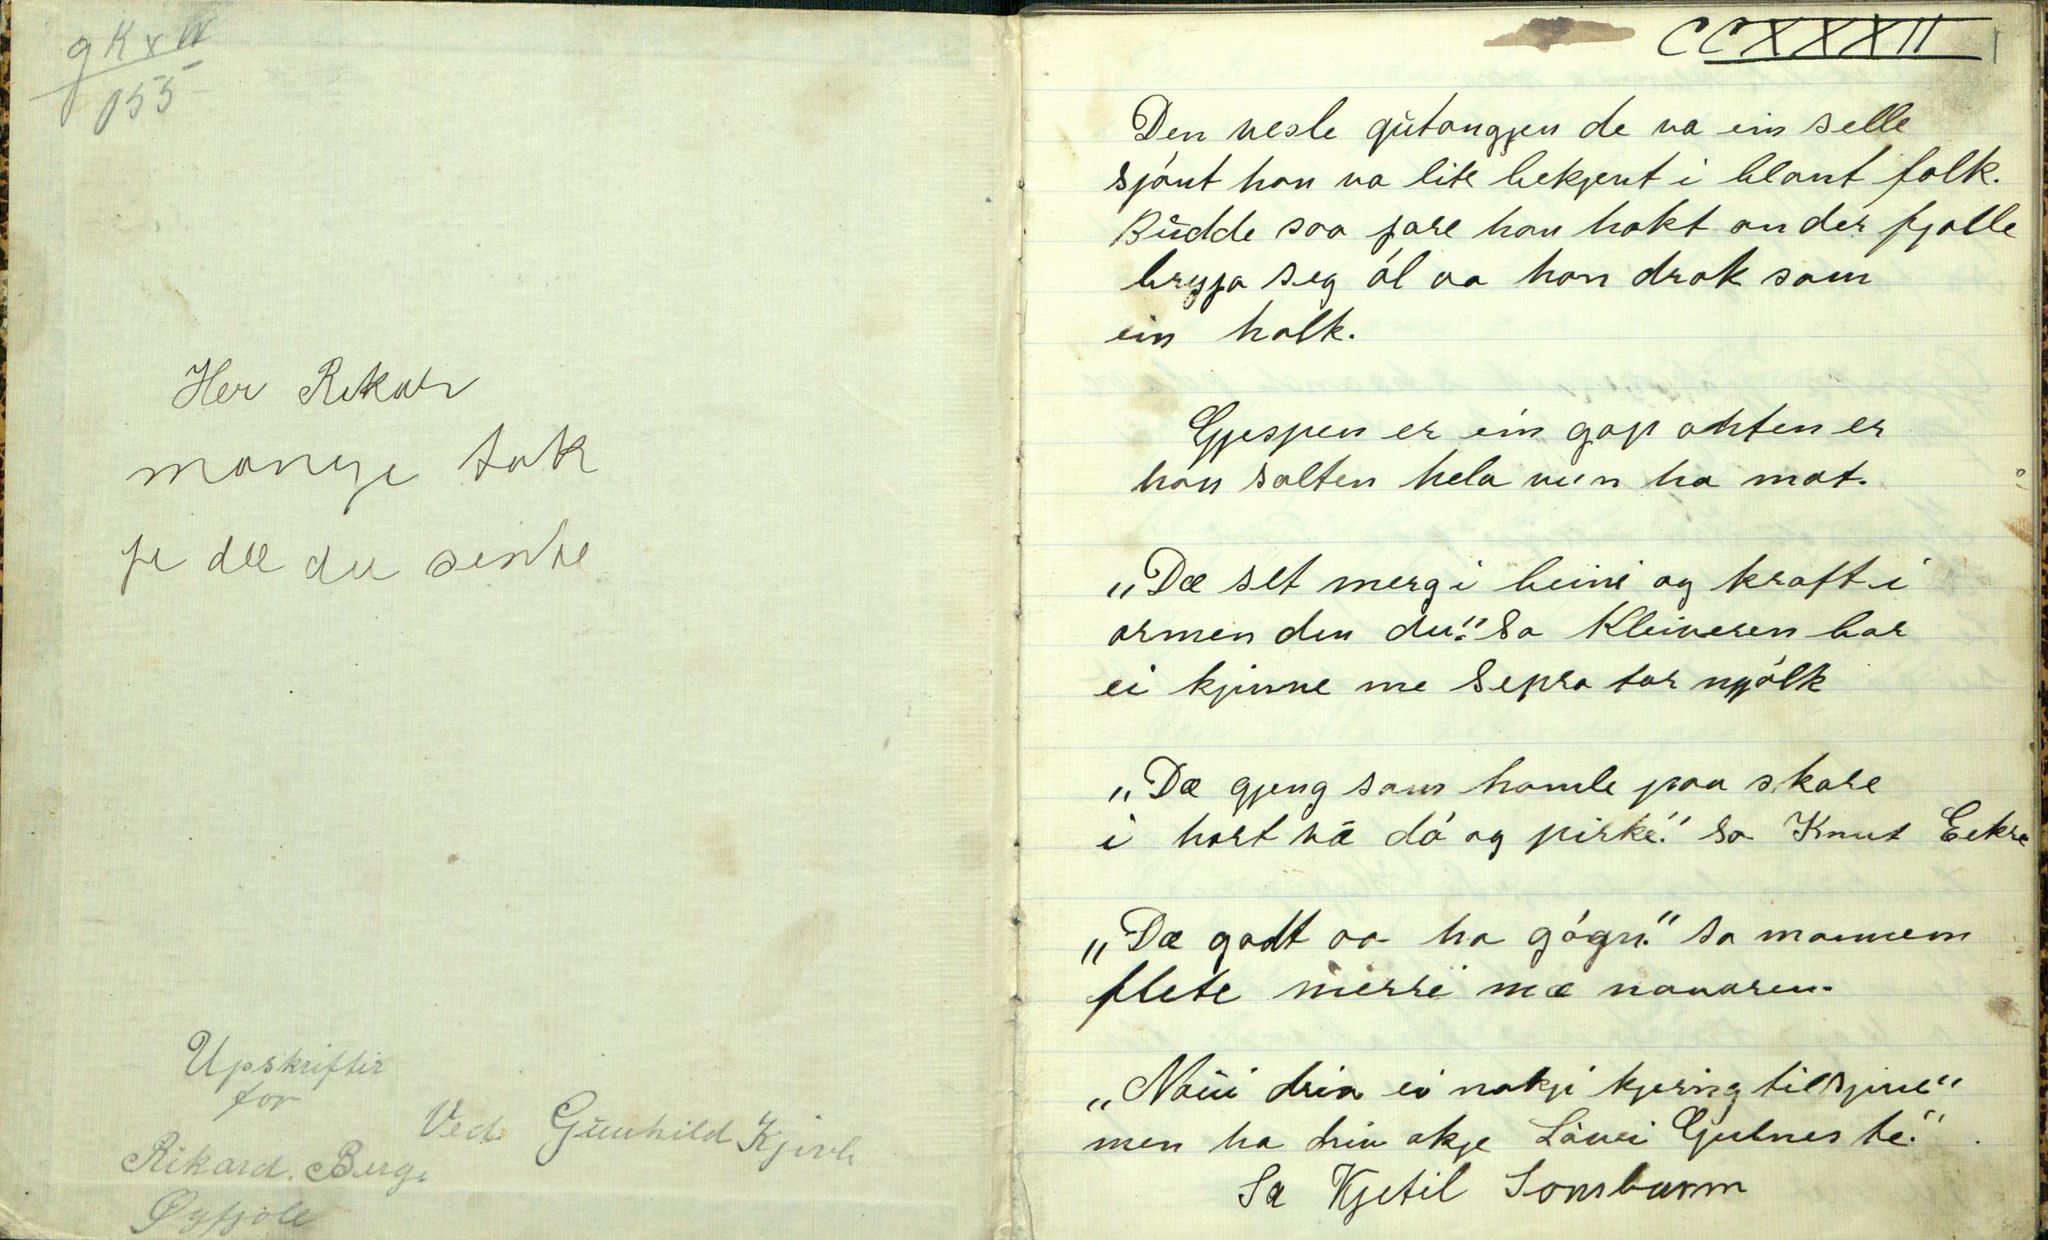 155
Her Rikar
mange tak
fe dæ du sente
Upskriftir
for
Rikard. Berge
Øyfjole
Ved Gunhild Kjivle
CCXXXII
Den vesle gutongjen de va ein selle
sjónt han va lite bekjent i blant folk.
Budde saa fare han hakt onder fjølle
bryja seg ól aa han drak som
ein halk.
Gjespen er ein gap ahten er
han salten hela vun ha mat.
„Dæ set merg i beini og kraft i
armen din du." Sa Kleiveren bar
ei kjinne me Sepra tor mjólk
„Dæ gjeng som hamle paa skare
i hort væ dó og pirke." sa Knut Eekre
„Dæ godt aa ha gógn." sa mannem
flete merri mæ navaren.
„Naui dria ei nokji kjering til sjine"
men ha driv okje Lavei Gulnes te."
Sa Kjetil Sonsbarm